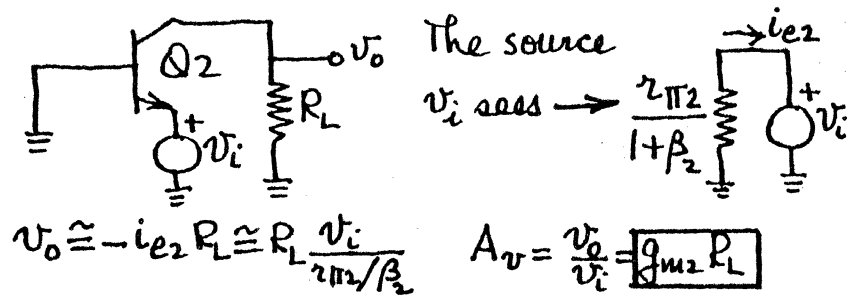 Q2
+
v_i
R_L
v_o
The source
v_i sees →
r_π2 / 1+β_2
i_e2
+
v_i
v_o ≅ -i_e2 R_L ≅ R_L v_i / r_π2/β_2
A_v = v_o/v_i = g_m2 R_L